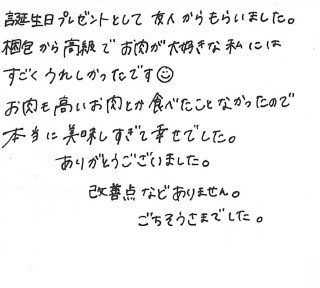 誕生日プレゼントとして友人からもらいました。
梱包から高級でお肉が大好きな私には
すごくうれしかったです☺
お肉も高いお肉とか食べたことなかったので
本当に美味しすぎて幸せでした。
ありがとうございました。
改善点などありません。
ごちそうさまでした。